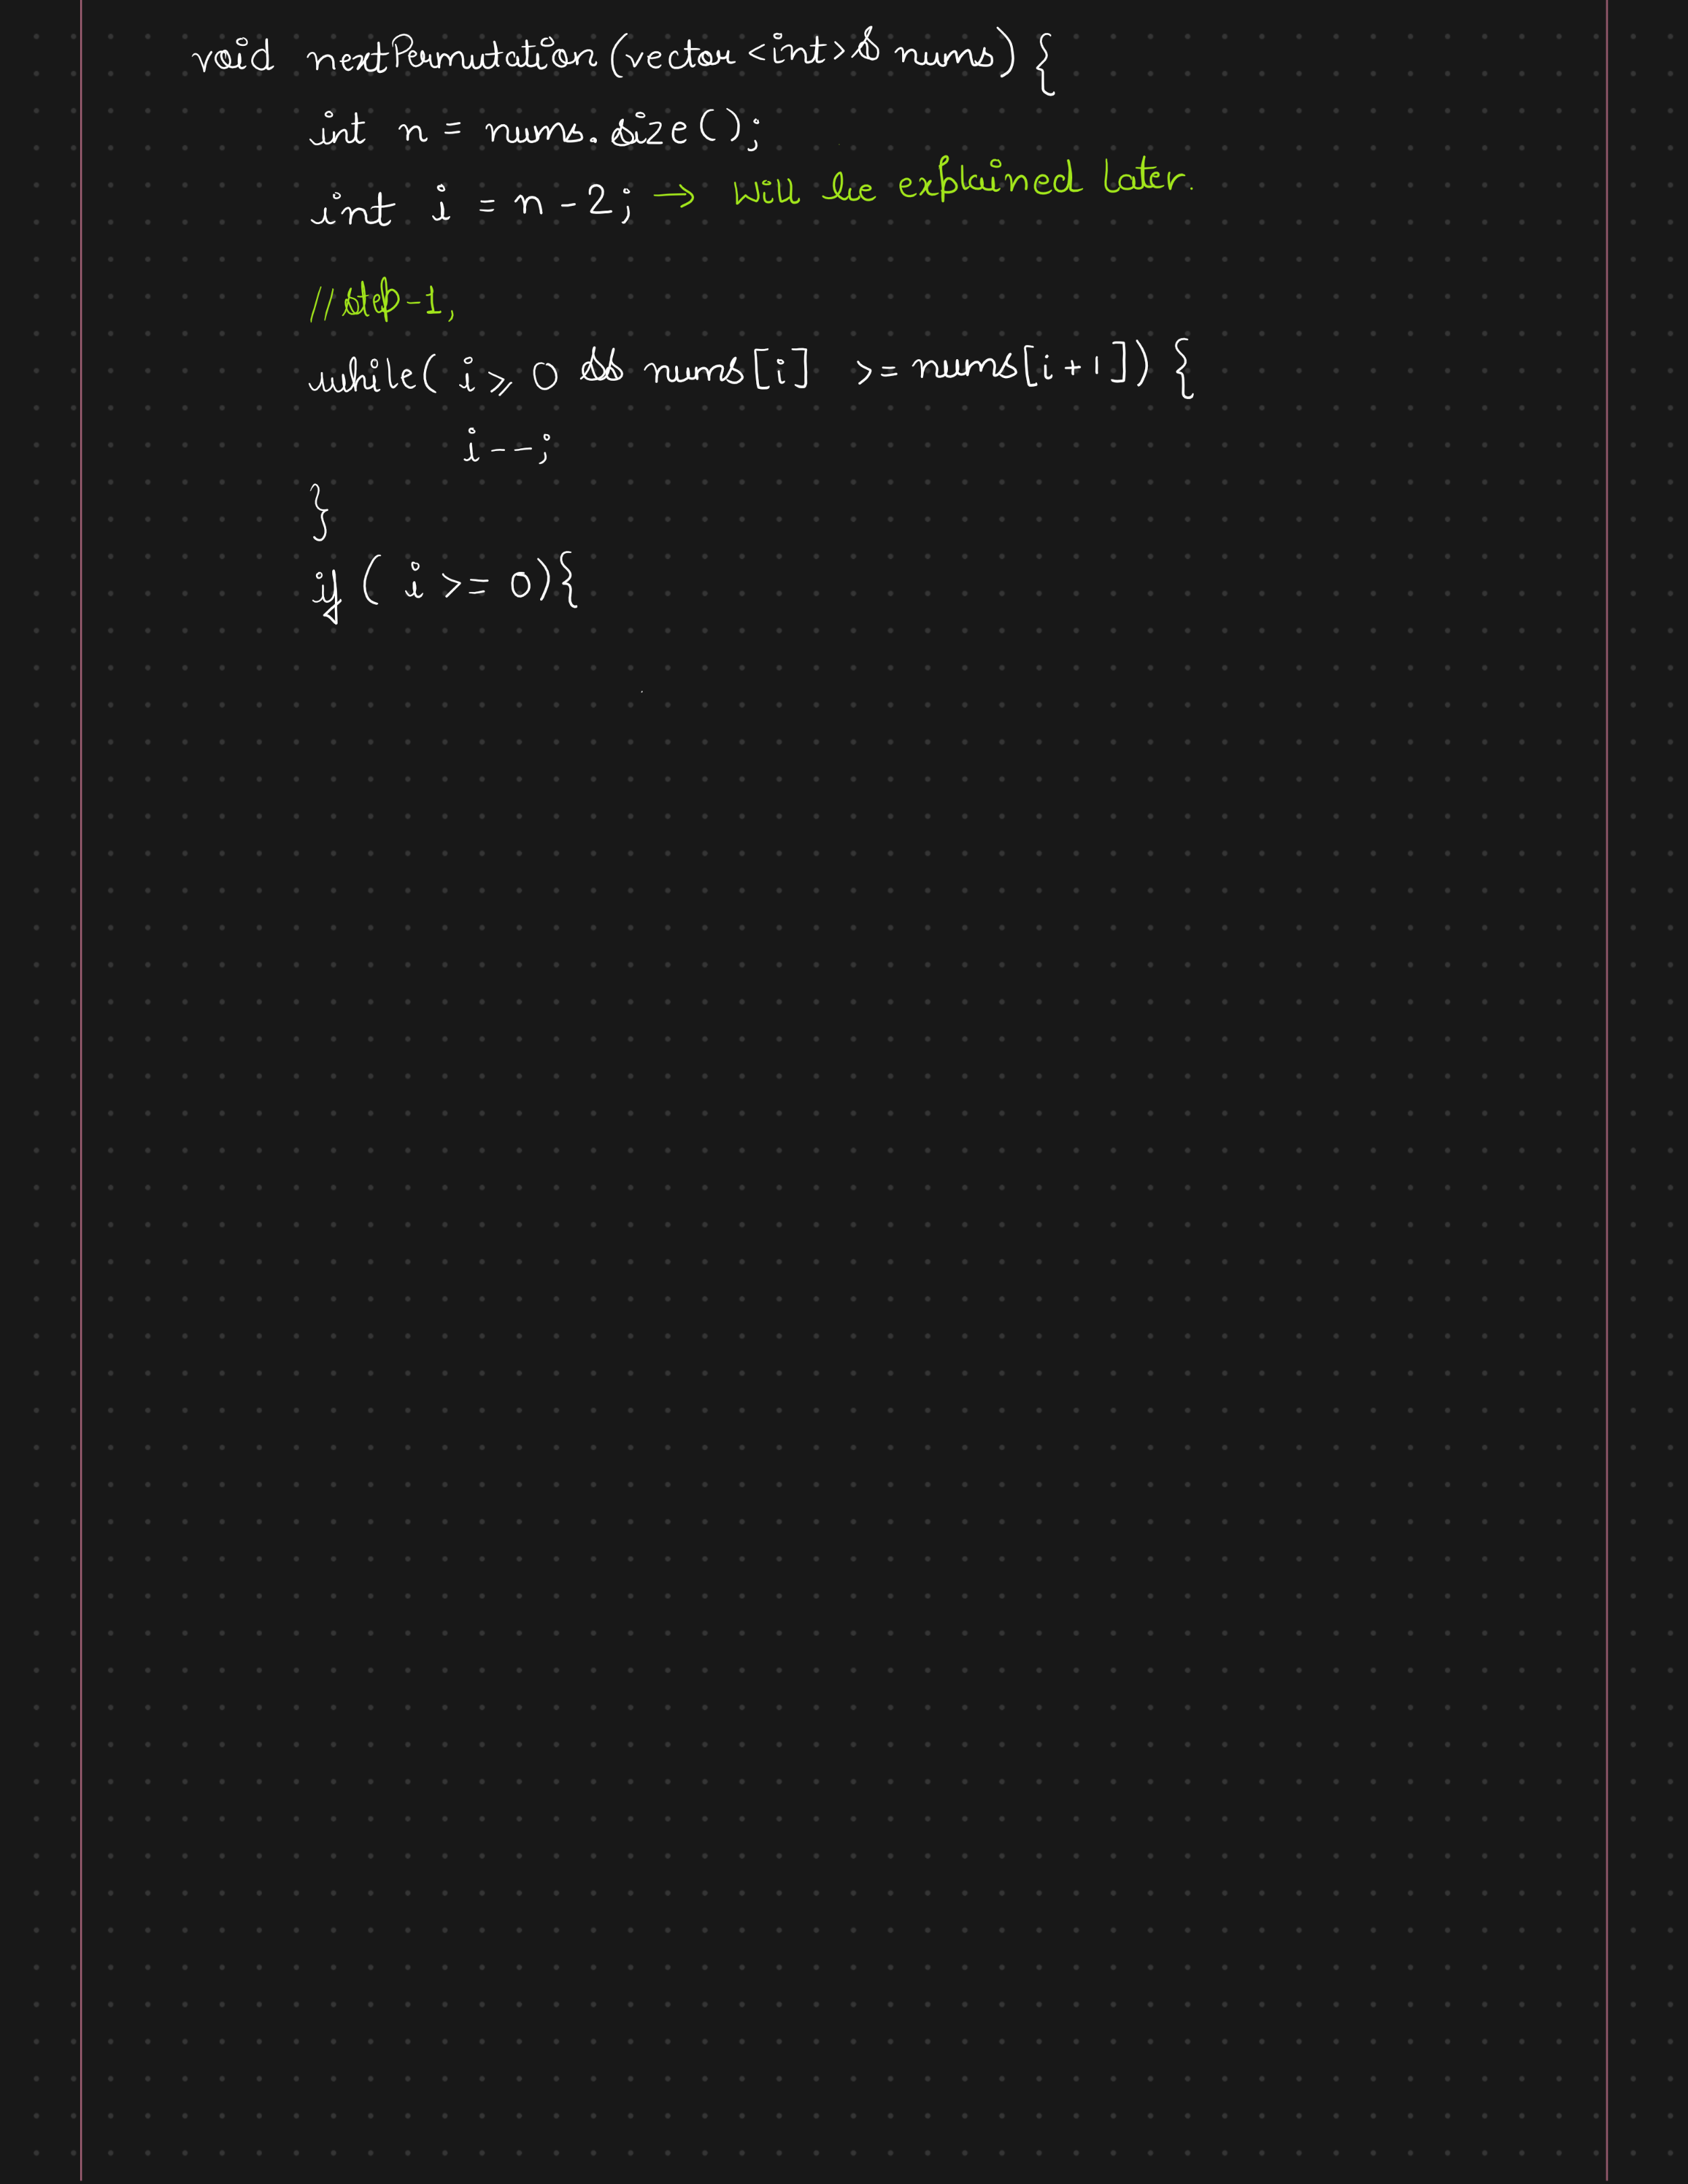 void nextPermutation(vector<int>& nums) {
int n = nums.size();
int i = n - 2; → Will be explained later.
//step-1,
while( i ⩾ 0 && nums[i] >= nums[i+1]) {
i--;
}
if ( i >= 0){